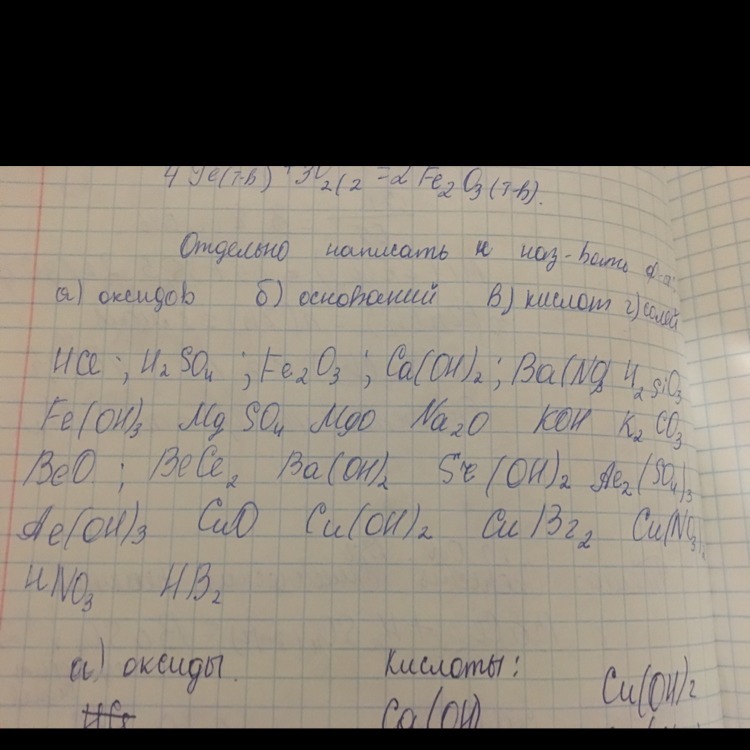 4 Fe(т-в) + 3O2(г = 2 Fe2O3(т-в).
Отдельно написать и наз-вать ф-л:
а) оксидов б) оснований в) кислот г) солей
HCl ; H2SO4 ; Fe2O3 ; Ca(OH)2 ; Ba(NO3 H2SiO3
Fe(OH)3 MgSO4 MgO Na2O KOH K2CO3
BeO ; BeCl2 Ba(OH)2 Sr(OH)2 Al2(SO4)3
Al(OH)3 CuO Cu(OH)2 CuBr2 Cu(NO3)2
HNO3 HBr
а) оксиды. Кислоты: Cu(OH)2
HCl Ca(OH)